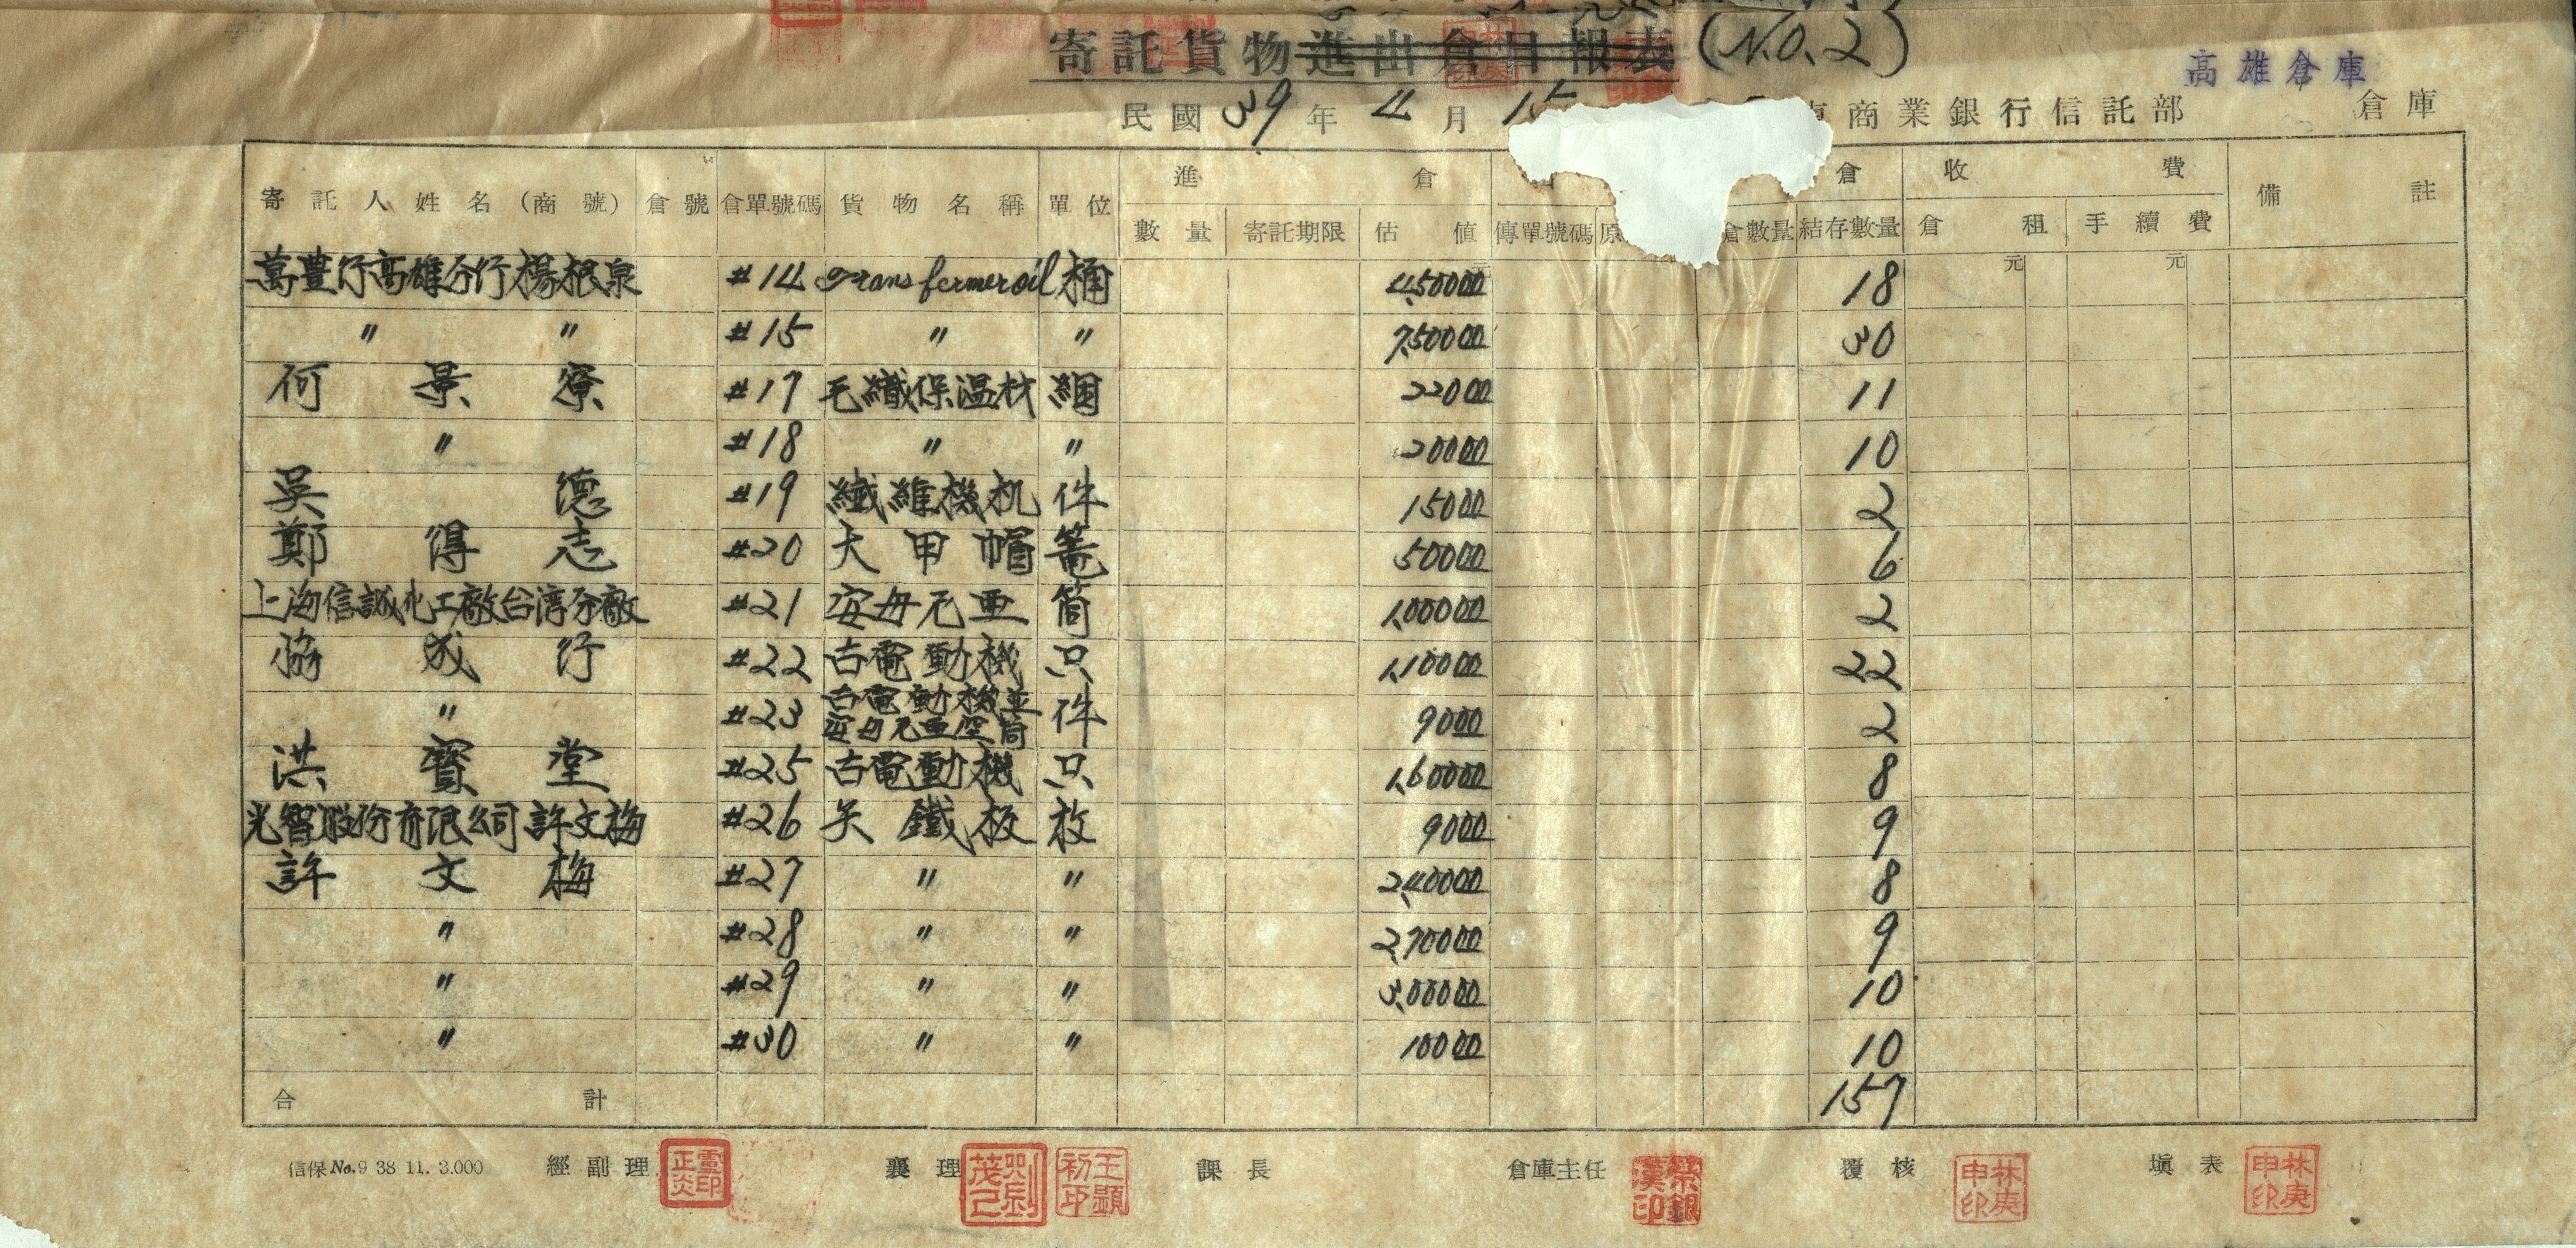 寄託貨物進出倉日報表 (N.O.2)
高雄倉庫
民國39年4月15 商業銀行信託部 倉庫
寄託人姓名(商號) 倉號 倉單號碼 貨物名稱 單位 進倉 倉 收費 備註
數量 寄託期限 估值 傳單號碼 原 倉數量 結存數量 倉租 手續費
元 元
萬豐行高雄分行楊根泉 #14 transfermer oil 桶 4,50000 18
〃 〃 #15 〃 〃 7,50000 30
何景寮 #17 毛織保温材 綑 22000 11
〃 #18 〃 〃 20000 10
吳德 #19 纖維機机 件 15000 2
鄭得志 #20 大甲帽 篭 50000 6
上海信誠化工廠台湾分廠 #21 安母尼亜 筒 1,00000 2
協成行 #22 古電動機 只 1,10000 22
〃 #23 古電動機並安母尼亜空筒 件 9000 2
洪寶堂 #25 古電動機 只 1,60000 8
光智股份有限公司 許文梅 #26 矢鐵板 枚 9000 9
許文梅 #27 〃 〃 2,40000 8
〃 #28 〃 〃 2,70000 9
〃 #29 〃 〃 3,00000 10
〃 #30 〃 〃 10000 10
合計 157
信保No.9 38 11. 3.000 經副理 襄理 課長 倉庫主任 覆核 填表
王顯初印
林庚申印
林庚申印